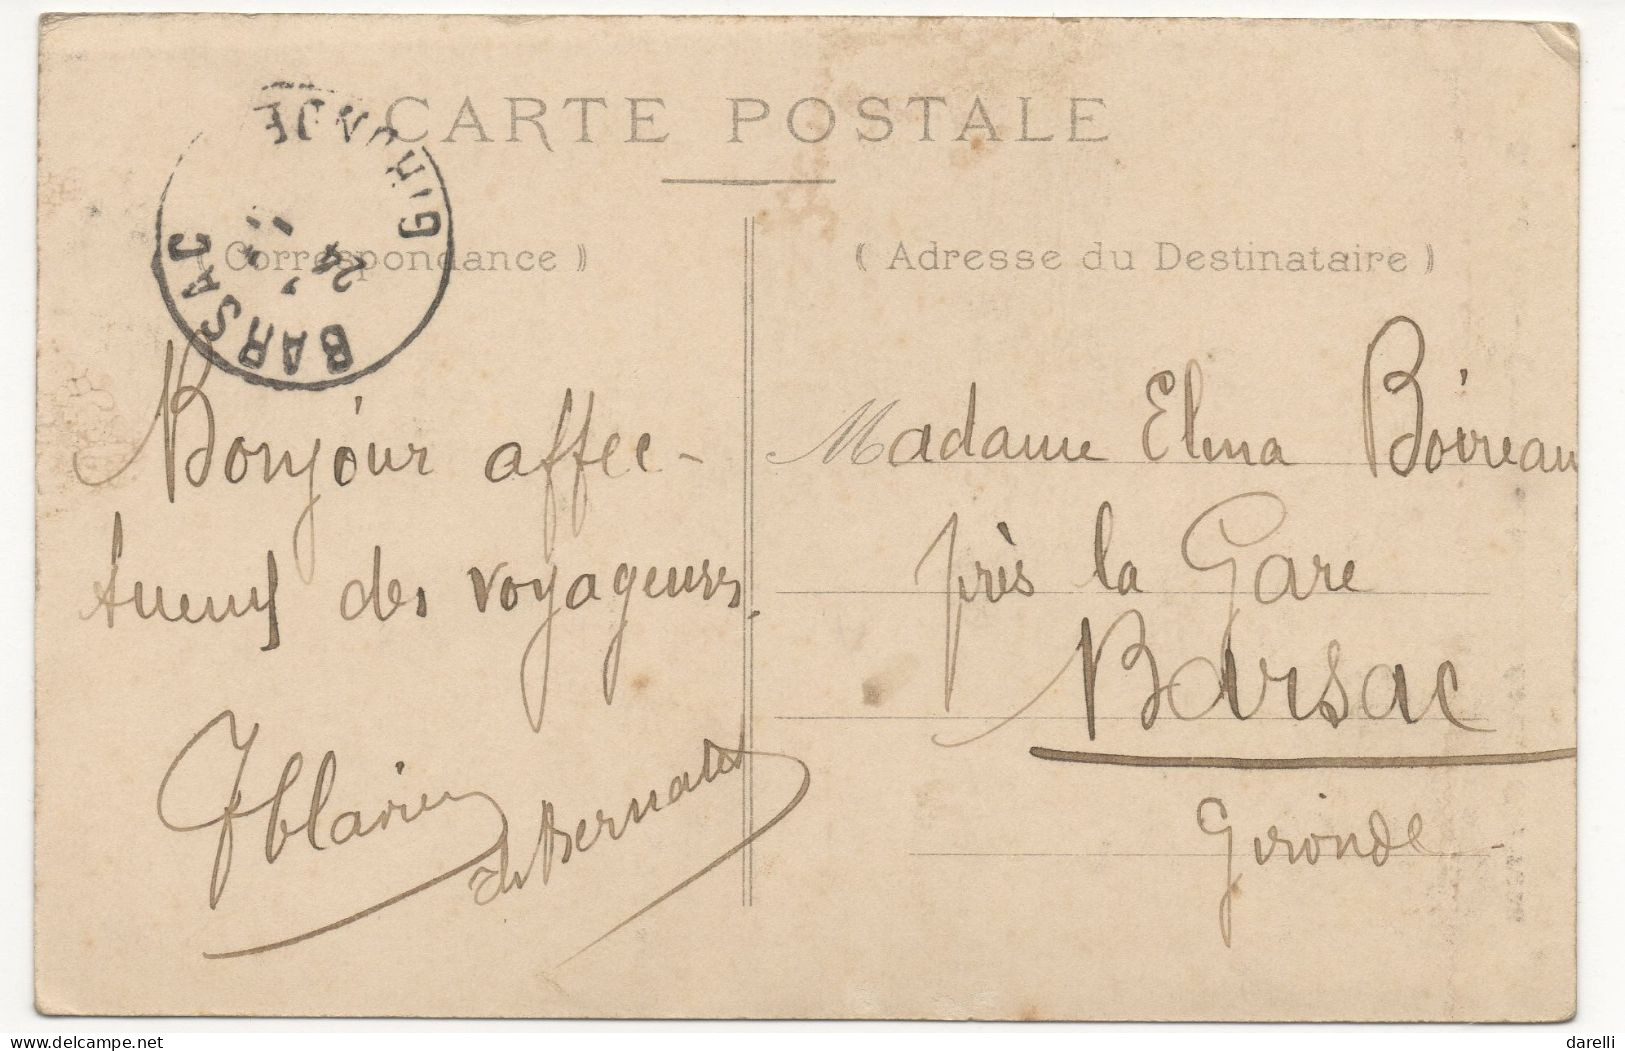 CARTE POSTALE
( Correspondance )
( Adresse du Destinataire )
BARSAC
GIRONDE
24
Bonjour affec-
tueux des voyageurs.
de Bernadet
Madame Elma Boireau
près la Gare
Barsac
Gironde
darelli